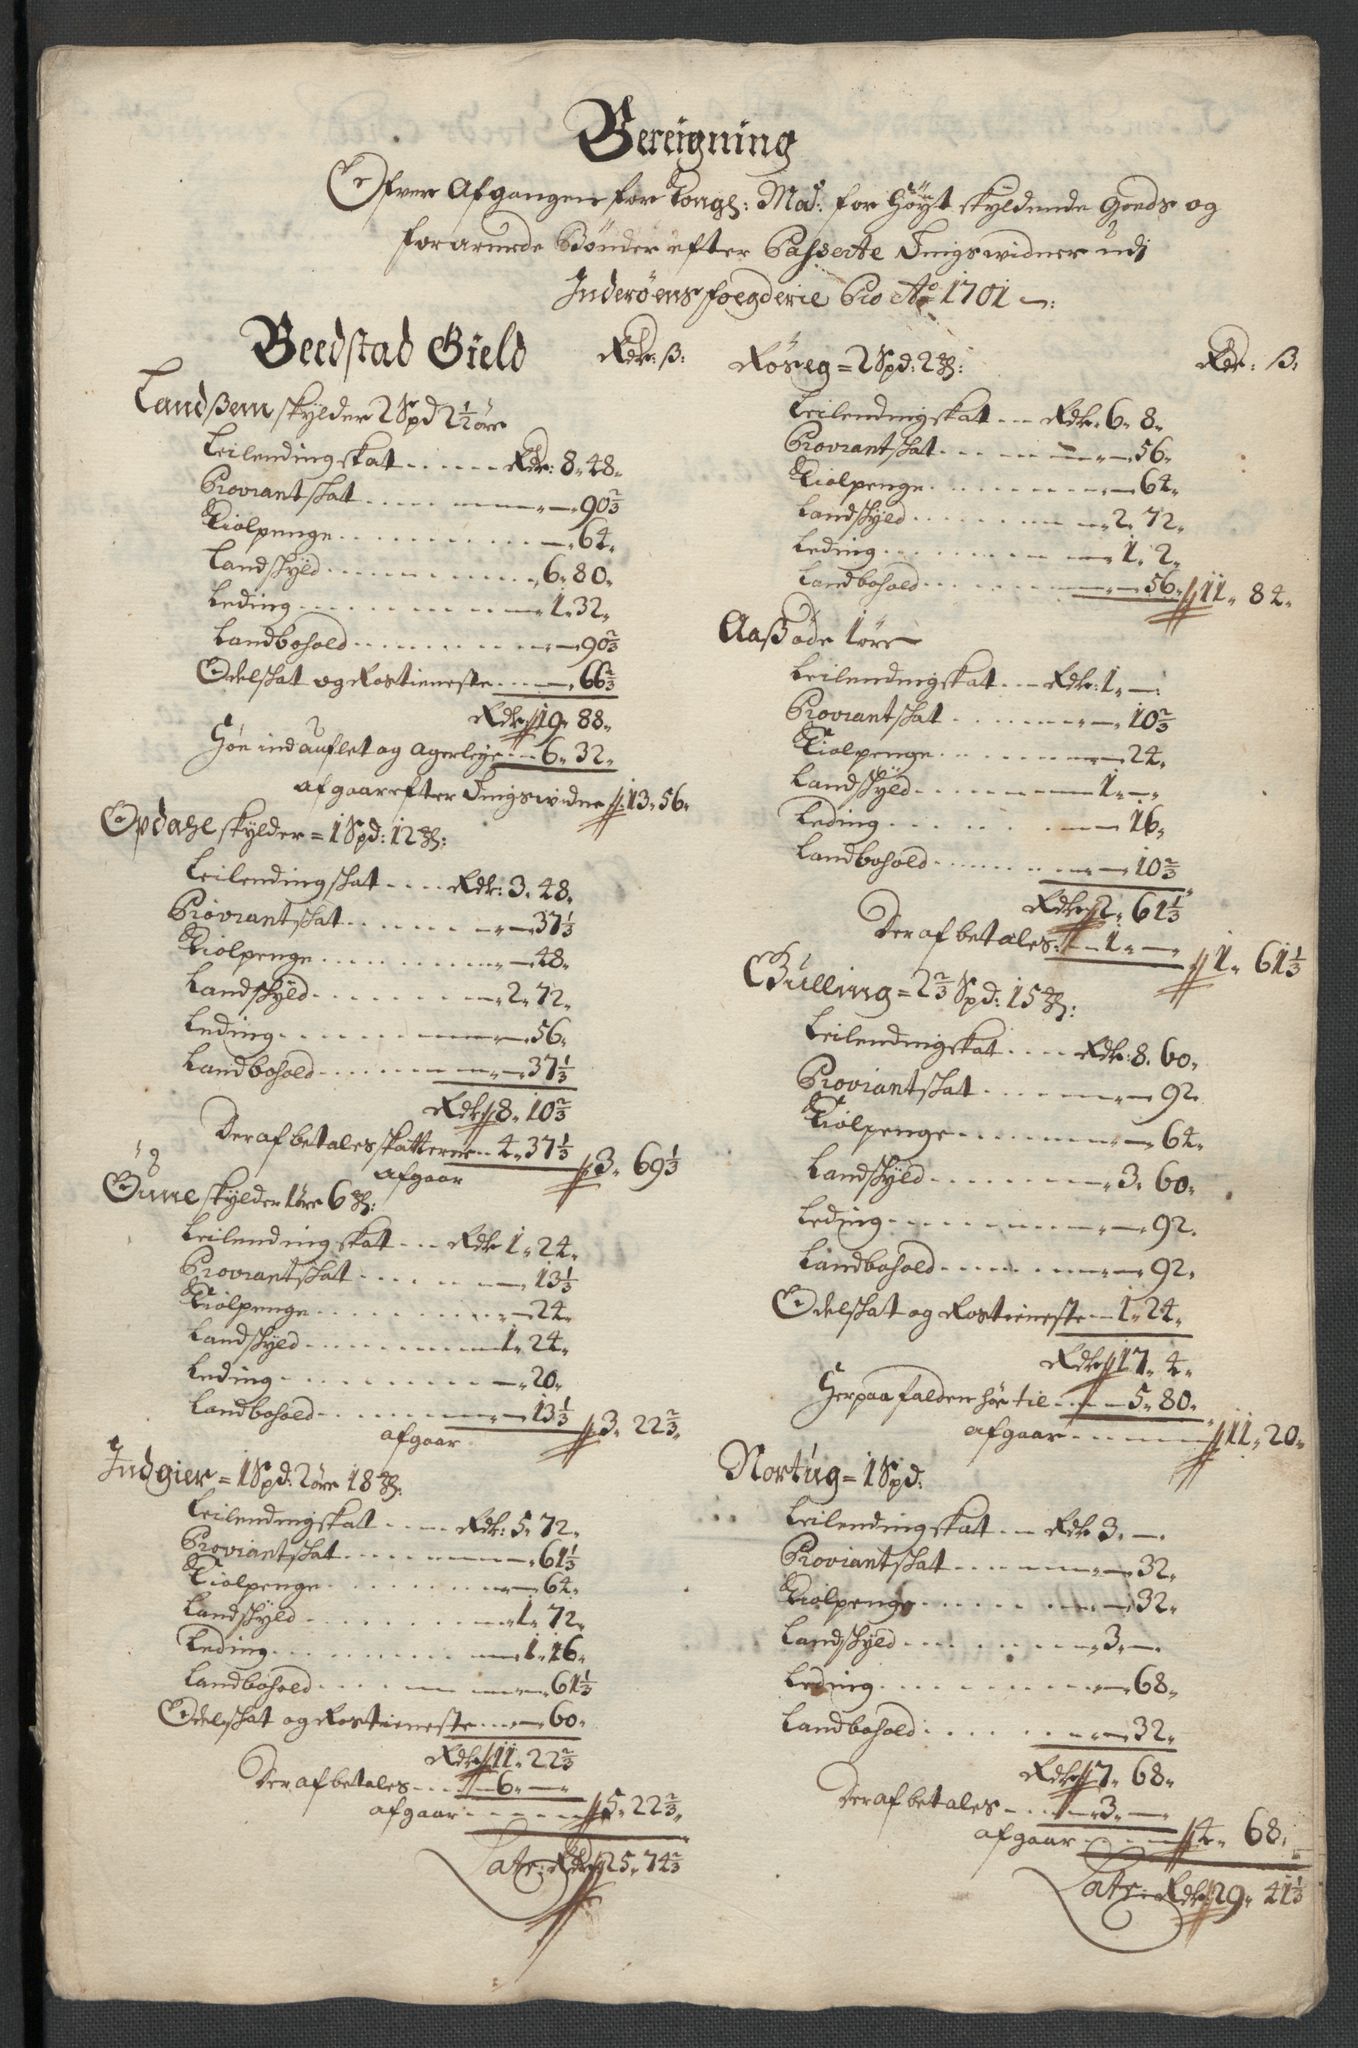 Bereigning
Ofver Afgangen for Kongl: May: for Höyt skyldende Goeds og
forarmede Bönder efter Passerte Tingswidner udi
Inderöens foegderie Pro Ao 1701
Beedstad Gield Rdr: ß:
Landßem skylder 2 Spd 2½ öre
Leilending skat Rdr: 8. 48.
Proviantskat 90⅔
Kiolpenge 64.
Landskyld 6. 80.
Leding 1. 32.
Landbohold 90⅔
Odelskat og Rostieneste 66⅔
Rdr 19. 88.
Höe ind auflet og agerleye 6. 32.
afgaar efter Tingswidne 13. 56.
Opdahl skylder = 1 Spd: 12 ß:
Leilending skat Rdr: 3. 48.
Proviantskat 37⅓
Kiolpenge 48.
Landskyld 2. 72.
Leding 56.
Landbohold 37⅓
Rdr 8. 10⅔
Der af betales skatterne 4. 37⅓
afgaar 3. 69⅓
skylder 1 öre 6 ß:
Leilending skat Rdr 1. 24.
Proviantskat 13⅓
Kiolpenge 24.
Landskyld 1. 24.
Leding 20.
Landbohold 13⅓
afgaar 3. 22⅔
Indgier = 1 Spd: 2 öre 18 ß:
Leilending skat Rdr: 5. 72.
Proviantskat 61⅓
Kiolpenge 64.
Landskyld 1. 72.
Leding 1. 16.
Landbohold 61⅓
Odelskat og Rostieneste 60.
Rdr 11. 22⅔
Der af betales 6. —
afgaar 5. 22⅔
Latr: Rdr 25. 74⅔
Röseg = 2 Spd: 2 ß: Rdr: ß:
Leilending skat Rdr. 6. 8.
Proviantskat 56.
Kiolpenge 64.
Landskyld 2. 72.
Leding 1. 2.
Landbohold 56. 11. 84.
Aaß öde 1 öre
Leilending skat Rdr: 1. —
Proviantskat 10⅔
Kiolpenge 24.
Landskyld 1. —
Leding 16.
Landbohold 10⅔
Rdr 2. 61⅓
Der af betales 1. — 1. 61⅓
Gulling = 2⅔ Spd: 15 ß:
Leilending skat Rdr: 8. 60.
Proviantskat 92.
Kiolpenge 64.
Landskyld 3. 60.
Leding 92.
Landbohold 92.
Odelskat og Rostieneste 1. 24.
Rdr 17. 4.
Herpaa falden höe til 5. 80.
afgaar 11. 20.
Nortug = 1 Spd:
Leilending skat Rdr 3. —
Proviantskat 32.
Kiolpenge 32.
Landskyld 3. —
Leding 68.
Landbohold 32.
Rdr 7. 68.
Der af betales 3. —
afgaar 4. 68.
Latr: Rdr 29. 41⅓